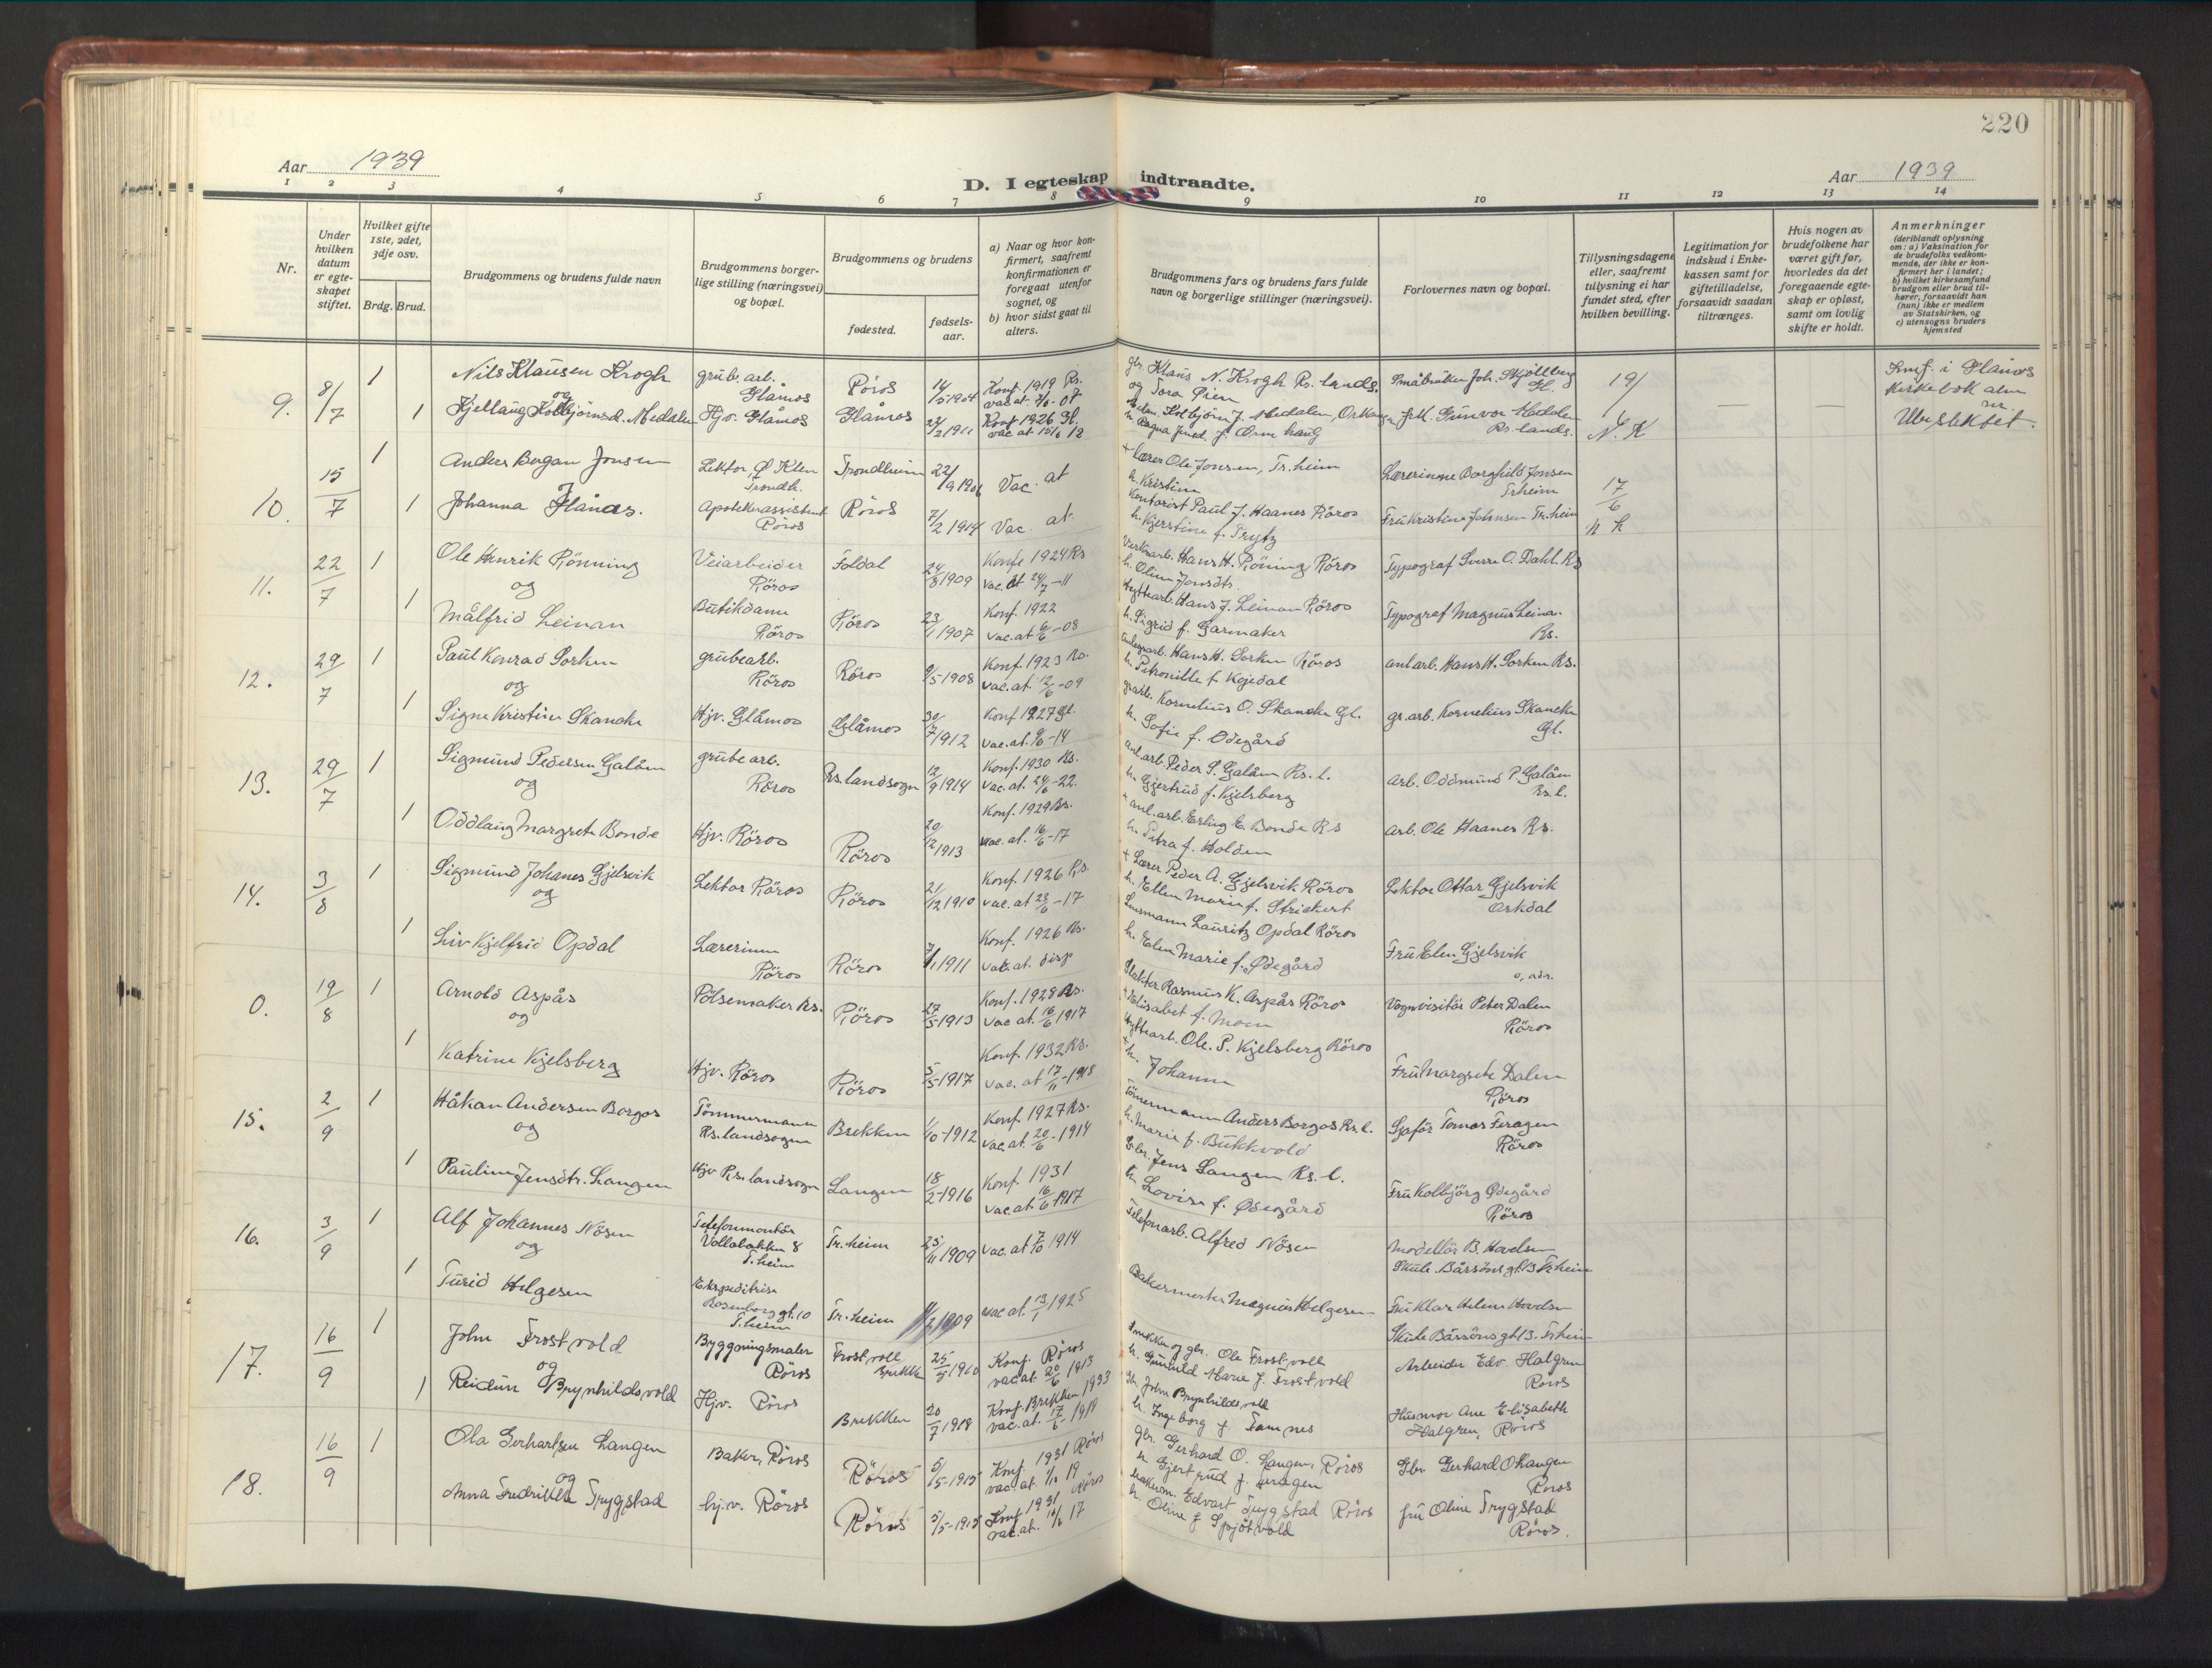 220
Aar 1939
D. I egteskap indtraadte.
Aar 1939
1 2 3 4 5 6 7 8 9 10 11 12 13 14
Nr.
Under hvilken datum er egteskapet stiftet.
Hvilket gifte 1ste, 2det, 3dje osv.
Brdg. Brud.
Brudgommens og brudens fulde navn
Brudgommens borgerlige stilling (næringsvei) og bopæl.
Brudgommens og brudens
fødested.
fødselsaar.
a) Naar og hvor konfirmert, saafremt konfirmationen er foregaat utenfor sognet, og
b) hvor sidst gaat til alters.
Brudgommens fars og brudens fars fulde navn og borgerlige stillinger (næringsvei).
Forlovernes navn og bopæl.
Tillysningsdagene eller, saafremt tillysning ei har fundet sted, efter hvilken bevilling.
Legitimation for indskud i Enkekassen samt for giftetilladelse, forsaavidt saadan tiltrænges.
Hvis nogen av brudefolkene har været gift før, hvorledes da det foregaaende egteskap er opløst, samt om lovlig skifte er holdt.
Anmerkninger
(deriblandt oplysning om: a) Vaksination for de brudefolks vedkommende, der ikke er konfirmert her i landet; b) hvilket kirkesamfund brudgom eller brud tilhører, forsaavidt han (hun) ikke er medlem av Statskirken, og c) utensogns bruders hjemsted
9. 8/7 1 Nils Klausen Krogh grub. arb. Glåmos Röros 14/5 1904 Konf. 1919 Rs. gbr. Klaus N. Krogh Rs. lands. og Tora Øien Småbruker Joh. Skjöllberg Gl. 19/6 N. K
og
1 Kjellaug Kolbjörnsd. Medalen Hjv. Glåmos Glåmos 1911 Konf 1926 Gl. Kolbjörn J. Medalen, Gunvor Medalen Rs. lands.
10. 15/7 1 Anders Bergan Jonsen Lektor, Trondh. Trondheim 22/9 1906 Vac. at + Lærer Ole Jonsen, Tr. heim h. Kristine Lærerinne Borghild Jonsen Trheim 17/6 N K
1 Johanna Hånes. Apotekerassistent Röros Röros 7/2 1914 Vac. at. Kontorist Paul J. Haanes Röros h. Kjerstine f. Trytz Fru Kristine Johnsen Tr. heim
11. 22/7 1 Ole Henrik Rönning Veiarbeider Röros Foldal 24/8 1909 Konf. 1924 Rs vac. at 24/7 - 11 Verksarb. Hans H. Röning, Röros h. Oline Jonsdtr Typograf Sverre O. Dahl. Rs
og
1 Målfrid Leinan Butikdame Röros Röros 23/1 1907 Konf. 1922 vac. at 6/6 - 08 Hyttearb. Hans J. Leinan Röros h. Sigrid f. Garmaker Typograf Magnus Leina. Rs.
12. 29/7 1 Paul Konrad Sorken grubearb. Röros Röros 9/5 1908 Konf. 1923 Rs. vac. at. 12/6 - 09 Hans H. Sorken Röros h. Petronille f. anl arb. Hans H. Sorken Rs.
og
1 Signe Kristine Skancke Hjv. Glåmos Glåmos 30/7 1912 Konf 1927 Gl. vac. at. - 14 Kornelius O. Skancke Gl. h. Sofie f. Ødegård gr. arb. Kornelius Skancke Gl.
13. 29/7 1 Sigmund Pedersen Galåen grube arb. Röros Rs. landsogn 12/9 1914 Konf. 1930 Rs. vac. at. 24/6 - 22. anl. arb. Peder S. Galåen Rs. l. h. Gjertrud f. Kjelsberg Arb. Oddmund P. Galåen Rs. l.
og
1 Oddlaug Margrete Bonde Hjv. Röros Röros 20/12 1913 Konf. 1929 Rs. vac. at. 16/6 - 17 + anl. arb. Erling E. Bonde Rs h. Petra f. Holden Arb. Ole Haanes Rs.
14. 3/8 1 Sigmund Johanes Gjelsvik Lektor Röros Röros 21/12 1910 Konf. 1926 Rs. vac. at 23/6 - 17 + Lærer Peder A. Gjelsvik Röros h. Ellen Marie f. Strickert Lektor Ottar Gjelsvik Orkdal
og
1 Liv Kjelfrid Opdal Lærerinne Röros Röros 1911 Konf. 1926 Rs. vac. at. disp Lensmann Lauritz Opdal Röros h. Elen Marie f. Ødegård Fru Elen Gjelsvik
0. 19/8 1 Arnold Aspås Pölsemaker Rs. Röros 27/5 1913 Konf. 1928 Rs. vac at. 16/6 1917 Slakter Rasmus K. Aspås Röros + Elisabet f. Moen Vognvisitör Peter Dalen Röros
og
1 Katrine Kjelsberg Hjv. Röros Röros 5/5 1917 Konf. 1932 Rs. vac. at 17/11 - 1918 Hyttearb. Ole. P. Kjelsberg Röros + h. Johanne Fru Margrete Dalen Röros
15. 2/9 1 Håkan Andersen Borgos Tömmermann Rs. landsogn Brekken 1/10 - 1912 Konf. 1927 Rs. vac at. 20/6 - 1914 Tömermann Anders Borgos Rs. l. h. Marie f. Bukkvold Sjaför Tomas Feragen Röros
og
1 Pauline Jensdtr. Langen Hjv Rs. landsogn Langen 18/2 1916 Konf. 1931 vac. at. 16/6 1917 Gbr. Jens Langen Rs. l. h. Lovise f. Ødegård Fru Kolbjörg Ødegård Röros
16. 3/9 1 Alf Johannes Nösen Telefonmontör Vollabakken 8 T. heim Tr. heim 25/11 1909 vac. at 7/10 1914 Telefonarb. Alfred Nösen Modellör B. Hovelsen Skule. Bårsönsgt. 13 Tr heim
og
1 Turid Helgesen Ekspeditrise Rosenborg gt. 10 T. heim Tr. heim 1909 vac at. 13/1 1925 Bakermester Magnus Helgesen Fru Klar Helene Hovelsen Skule Bårsönsgt 13. Trheim
17. 16/9 1 John Frostvold Byggningsmaler Röros Frostvoll Brekken 25/5 1910 Konf. Röros vac at. 20/6 1913 Snekker og gbr. Ole Frostvoll h. Gunhild Marie f. Frostvold Arbeider Edv. Halgren Röros
og
1 Reidun Brynhildsvold Hjv. Röros Brekken 20/7 1918 Konf. Brekken 1933 vac. at. 17/6 - 1919 Gbr. John Brynhildsvoll h. Ingeborg f Tamnes Husmor Ane Elisabeth Halgren, Röros
18. 16/9 1 Ola Gerhartsen Langen Baker, Röros Röros 5/5 - 1915 Konf. 1931 Röros vac. at. 19 gbr. Gerhard O. Langen, Röros h Gjertrud f. Feragen Gbr Gerhard O Langen Röros
og
Anna Fredrikke Trygstad hj. v. Röros Röros 5/5 - 1915 Konf. 1931 Röros vac. at. 17 Edvart Trygstad Röros h. Oline f Spjötvold fru Oline Trygstad Röros.